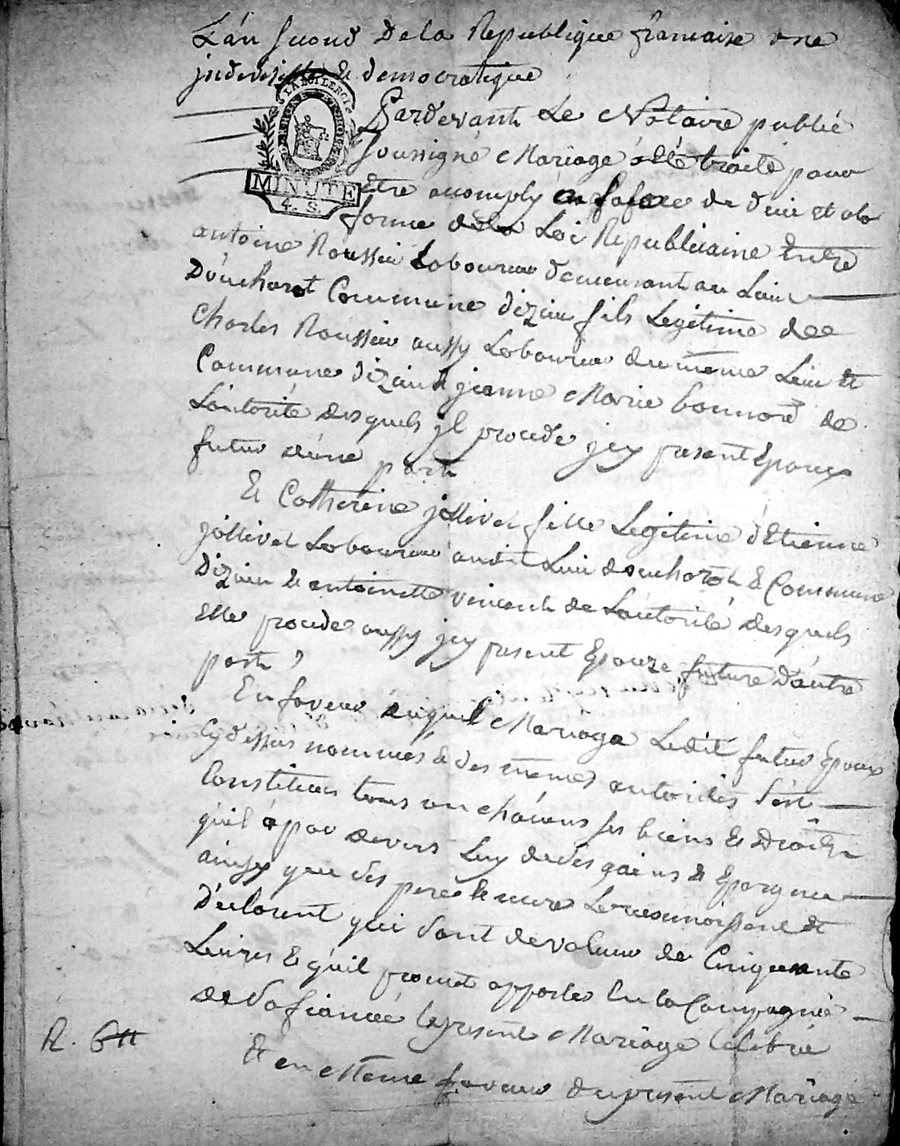 L'an second De la Republique francaise une
jndivisible & democratique
Pardevant Le Notaire public
soussigné Mariage á été traité pour
MINUTE
4. S.
Être accomply en de et
forme de la Loi Republicaine Entre
antoine Roussin Laboureur demeurant au Lieu
Douchorot Commune dizieu fils Legitime de
Charles Roussin aussy Laboureur du même Lieu et
Commune dizieu & jeanne Marie bonnard de
L'autorité desquels jl procede jcy present Epoux
futur d'une part
Et Catherine jollivet fille Legitime d'Etienne
jollivet Laboureur audit Lieu douchorot & Commune
Dizieu & antoinette vincent de L'autorité desquels
elle procede aussy jcy present Epouze future d'autre
part
En faveur duquel Mariage Ledit futur Epoux
Cy dessus nommés & des mêmes autorités s'est
Constitué tous un chácuns ses biens & Droits
qu'il a par devers Luy de ses gains & Epargnes
ainsy que ses pere & mere Le reconnoissent et
Déclarent qui sont de valeur de Cinquante
Livres & qu'il promet apporter En la Compagnie
de Sa fiancée le present Mariage Célébré
R. 6tt
& en Meme faveur du present Mariage